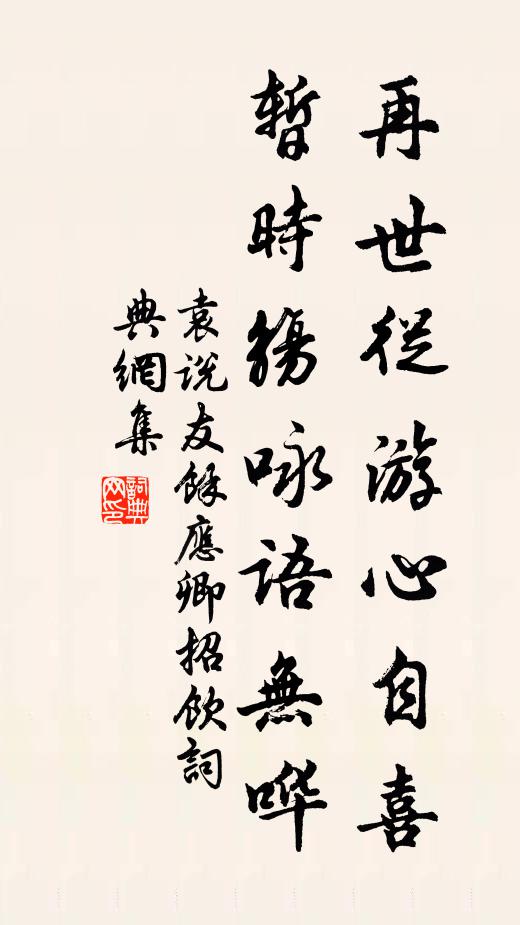 再世從游心自喜
暫時觴咏語無哗
袁説友餘應卿招飲詞
典網集
詞典网印